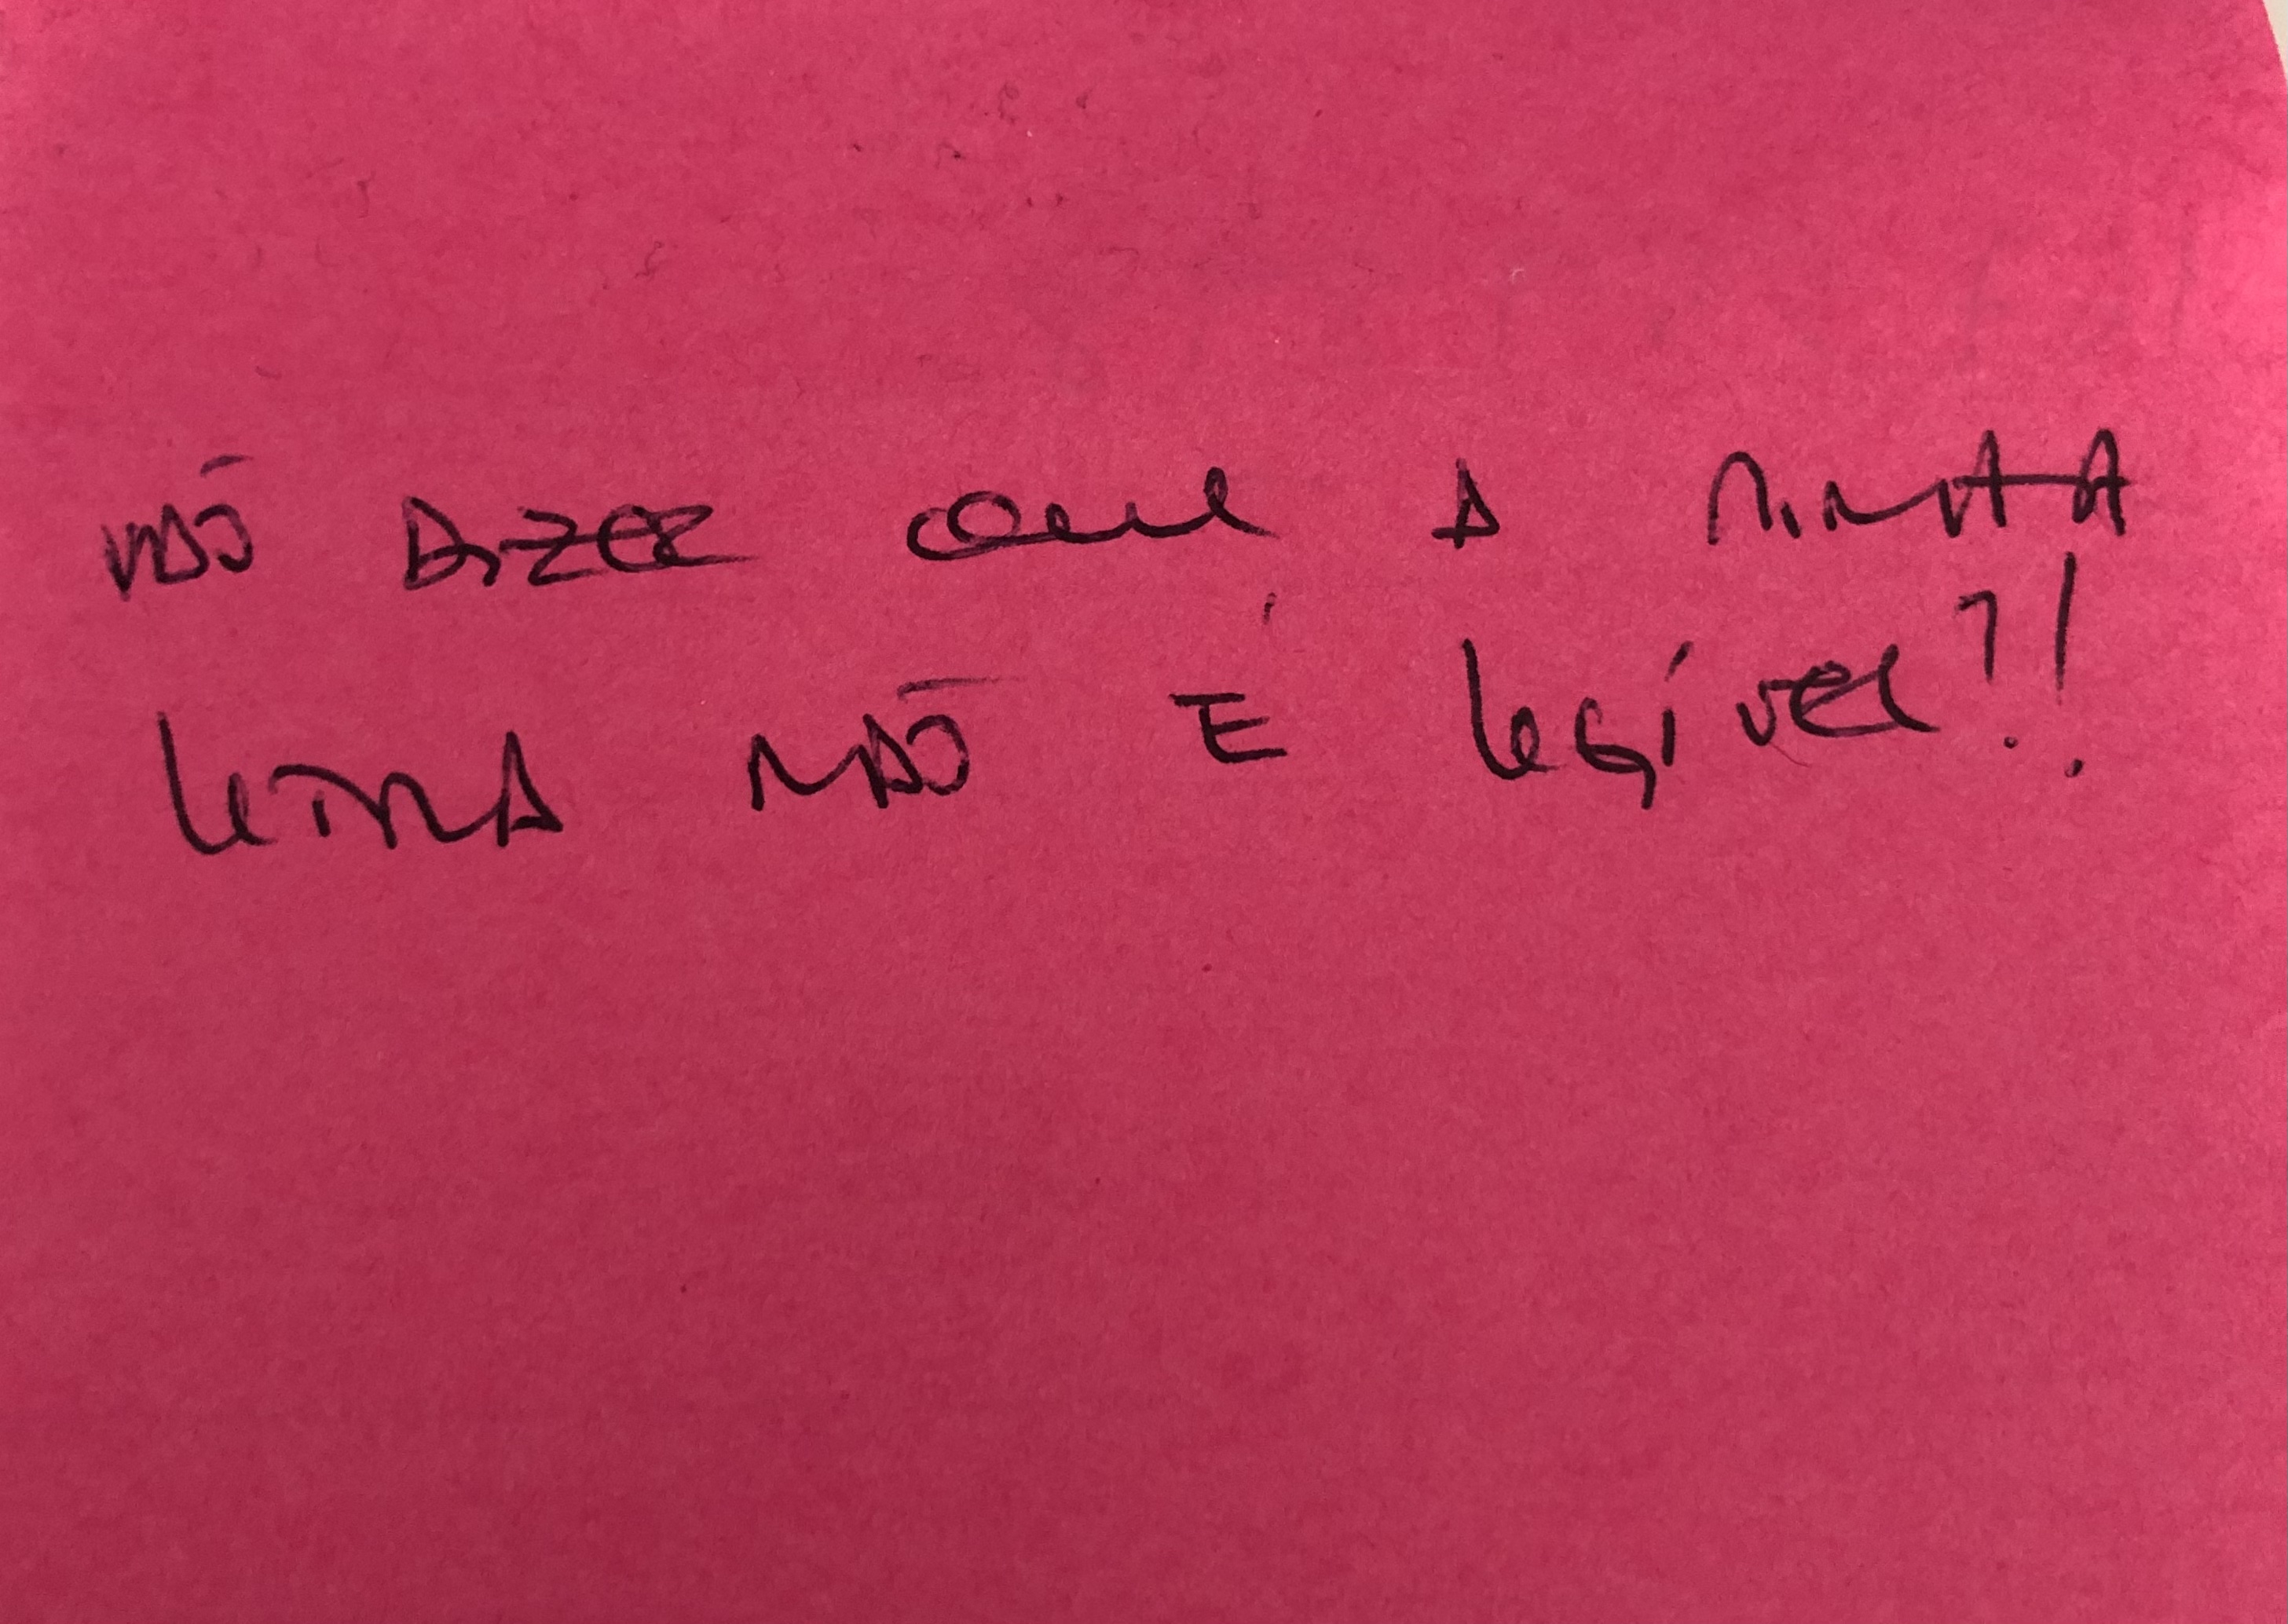 VÃO DIZER QUE A MINHA
LETRA NÃO É LEGÍVEL?!